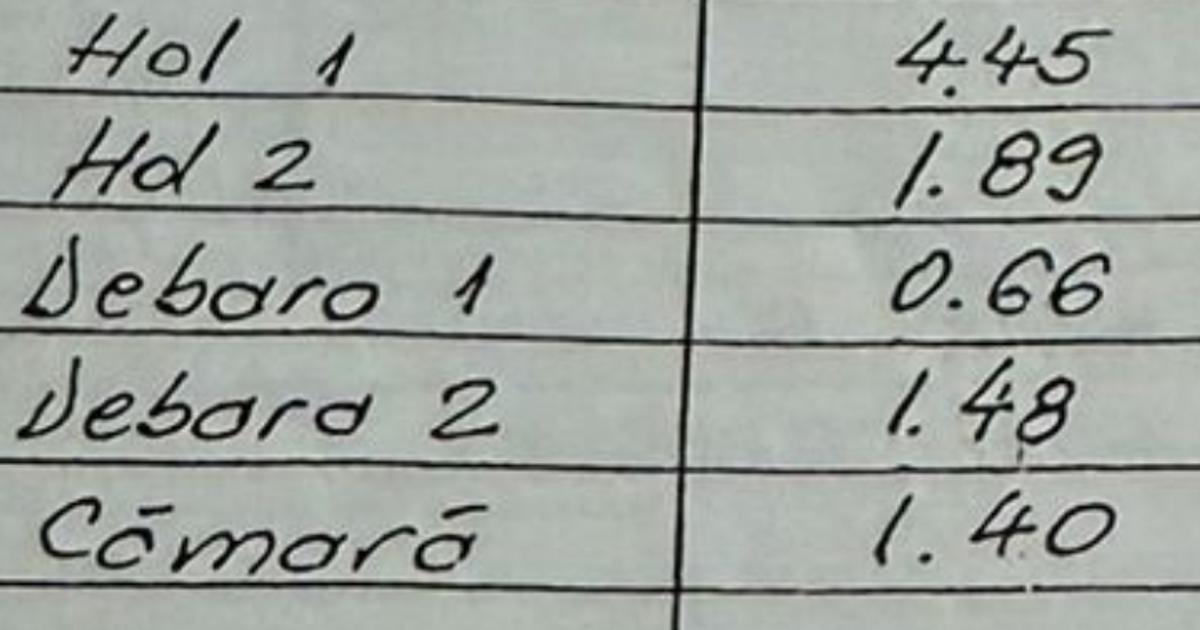 Hol 1 4.45
Hol 2 1.89
Debara 1 0.66
Debara 2 1.48
Cămară 1.40